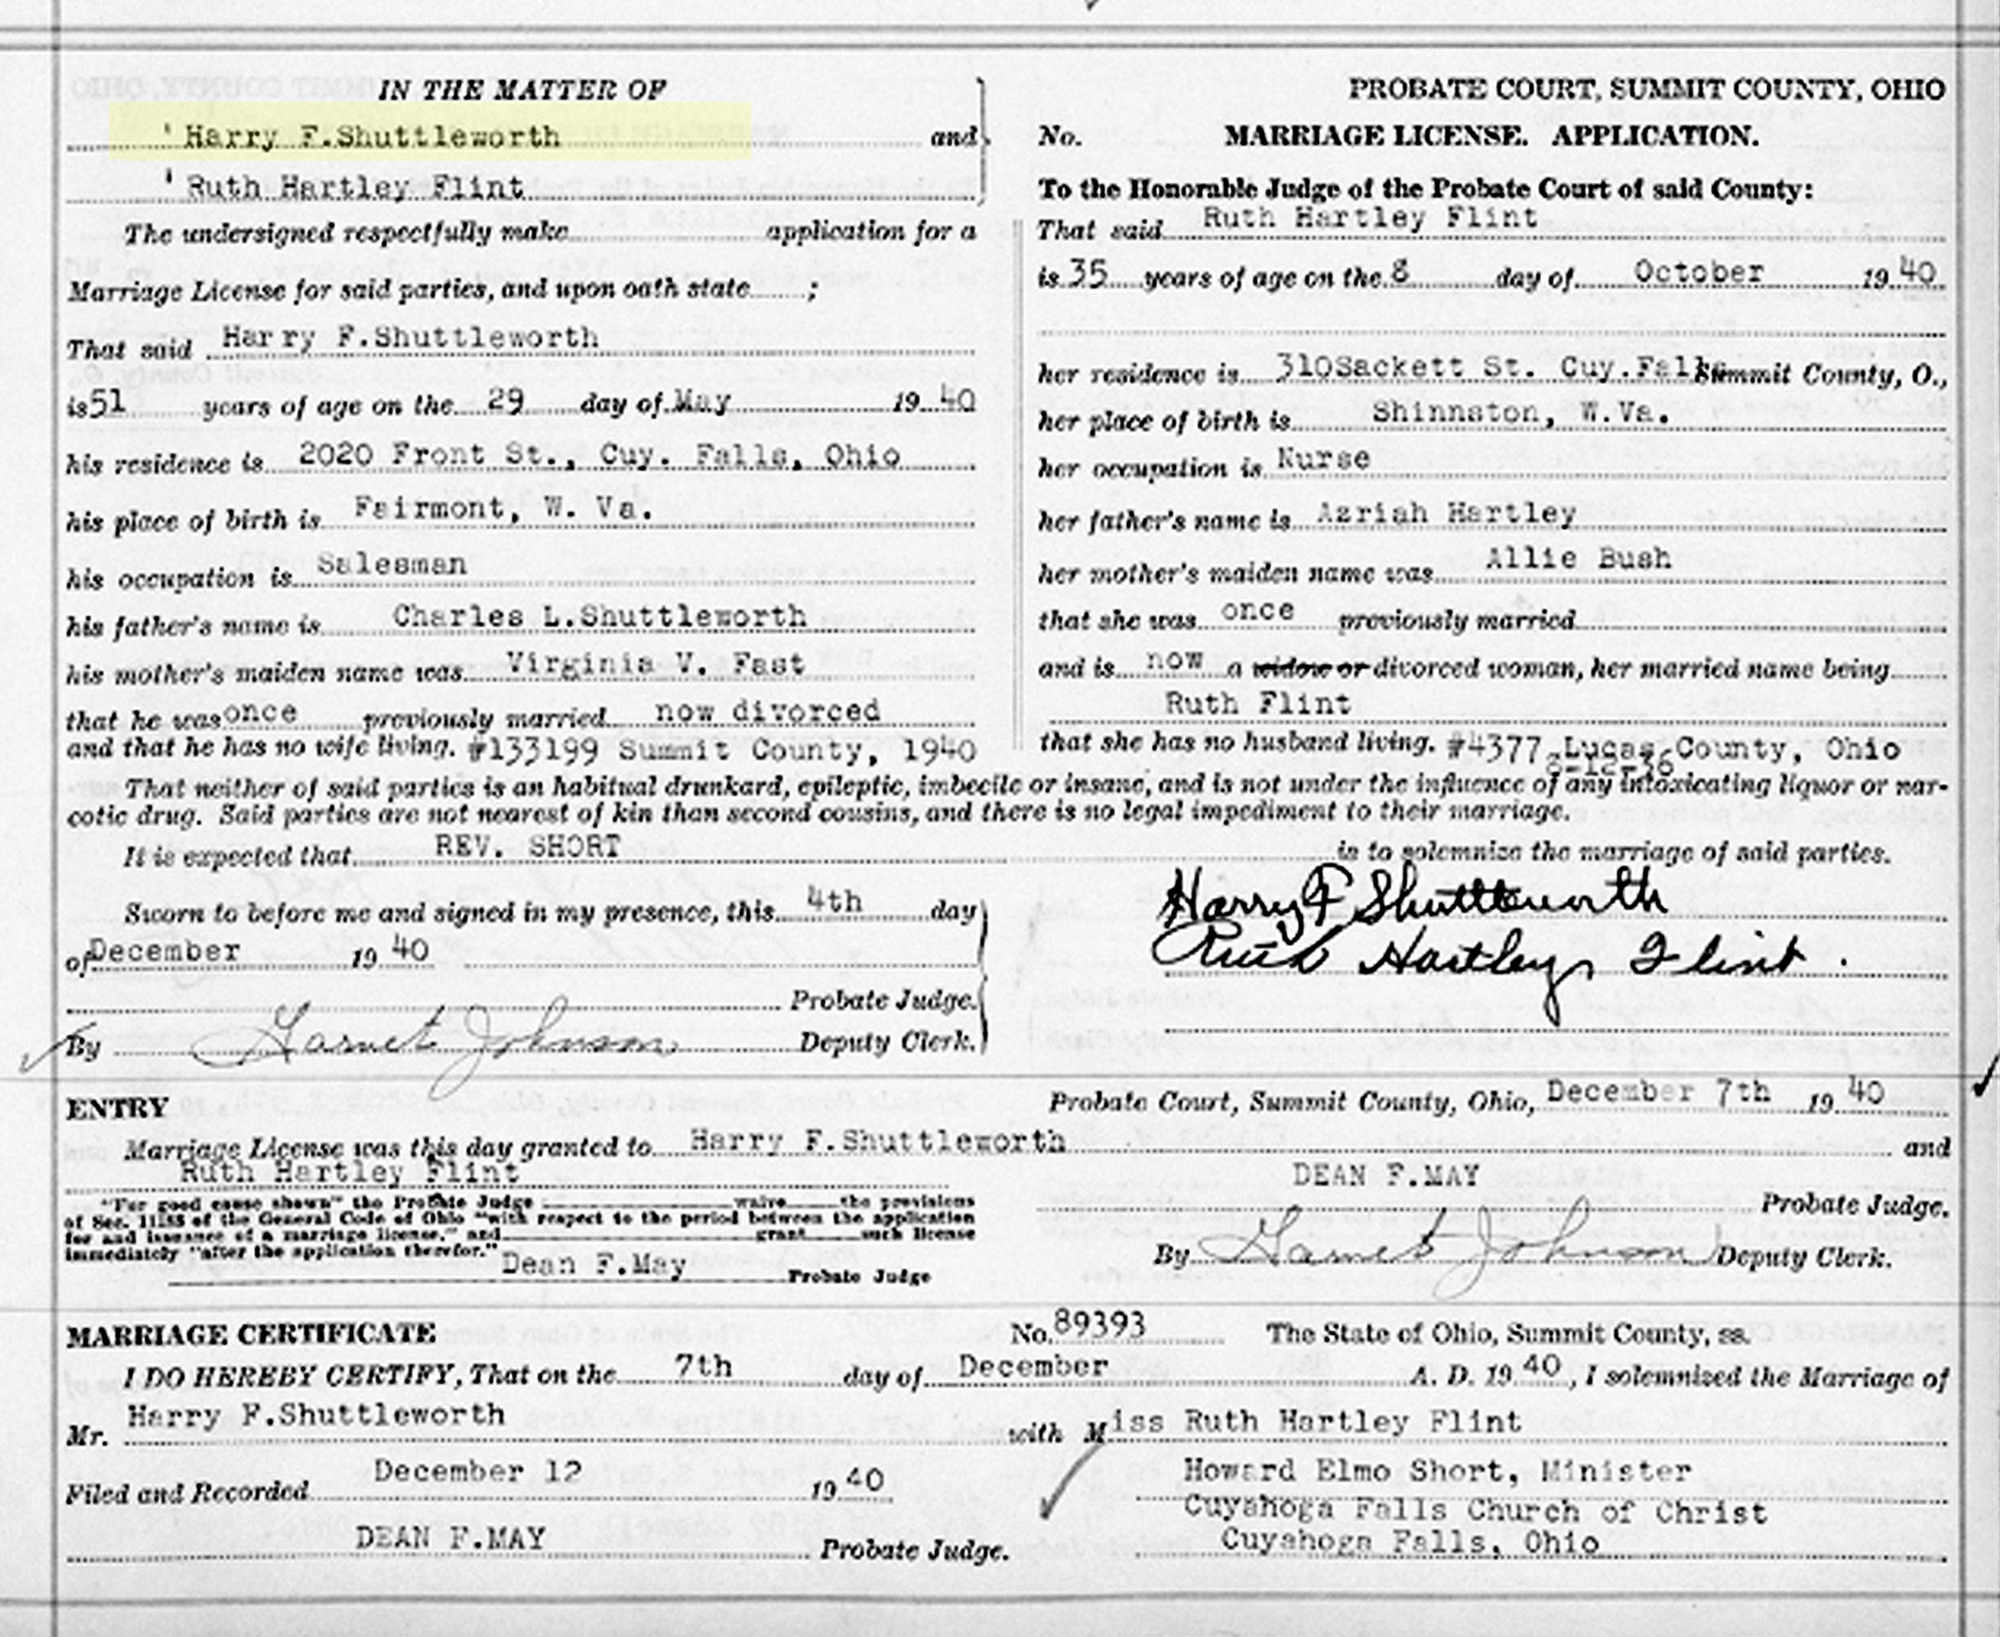 IN THE MATTER OF
Harry F.Shuttleworth and
Ruth Hartley Flint
The undersigned respectfully make application for a
Marriage License for said parties, and upon oath state ;
That said Harry F.Shuttleworth
is 51 years of age on the 29 day of May 19 40
his residence is 2020 Front St., Cuy. Falls, Ohio
his place of birth is Fairmont, W. Va.
his occupation is Salesman
his father's name is Charles L.Shuttleworth
his mother's maiden name was Virginia V. Fast
that he was once previously married now divorced
and that he has no wife living. #133199 Summit County, 1940
PROBATE COURT, SUMMIT COUNTY, OHIO
No. MARRIAGE LICENSE. APPLICATION.
To the Honorable Judge of the Probate Court of said County:
That said Ruth Hartley Flint
is 35 years of age on the 8 day of October 19 40
her residence is 310Sackett St. Cuy.Falls Summit County, O.,
her place of birth is Shinnston, W.Va.
her occupation is Nurse
her father's name is Azriah Hartley
her mother's maiden name was Allie Bush
that she was once previously married
and is now a widow or divorced woman, her married name being
Ruth Flint
that she has no husband living. #4377 Lucas County, Ohio
8-12-36
That neither of said parties is an habitual drunkard, epileptic, imbecile or insane, and is not under the influence of any intoxicating liquor or nar-
cotic drug. Said parties are not nearest of kin than second cousins, and there is no legal impediment to their marriage.
It is expected that REV. SHORT is to solemnize the marriage of said parties.
Sworn to before me and signed in my presence, this 4th day
of December 19 40
Probate Judge.
By Garnet Johnson Deputy Clerk.
Harry F Shuttleworth
Ruth Hartley Flint.
ENTRY
Probate Court, Summit County, Ohio, December 7th 19 40
Marriage License was this day granted to Harry F.Shuttleworth and
Ruth Hartley Flint
"For good cause shown" the Probate Judge waive the provisions
of Sec. 11188 of the General Code of Ohio "with respect to the period between the application
for and issuance of a marriage license," and grant such license
immediately "after the application therefor."
Dean F.May Probate Judge
DEAN F.MAY
Probate Judge.
By Garnet Johnson Deputy Clerk.
MARRIAGE CERTIFICATE No. 89393 The State of Ohio, Summit County, ss.
I DO HEREBY CERTIFY, That on the 7th day of December A. D. 19 40, I solemnized the Marriage of
Mr. Harry F.Shuttleworth with Miss Ruth Hartley Flint
Filed and Recorded December 12 19 40
DEAN F.MAY Probate Judge.
Howard Elmo Short, Minister
Cuyahoga Falls Church of Christ
Cuyahoga Falls, Ohio